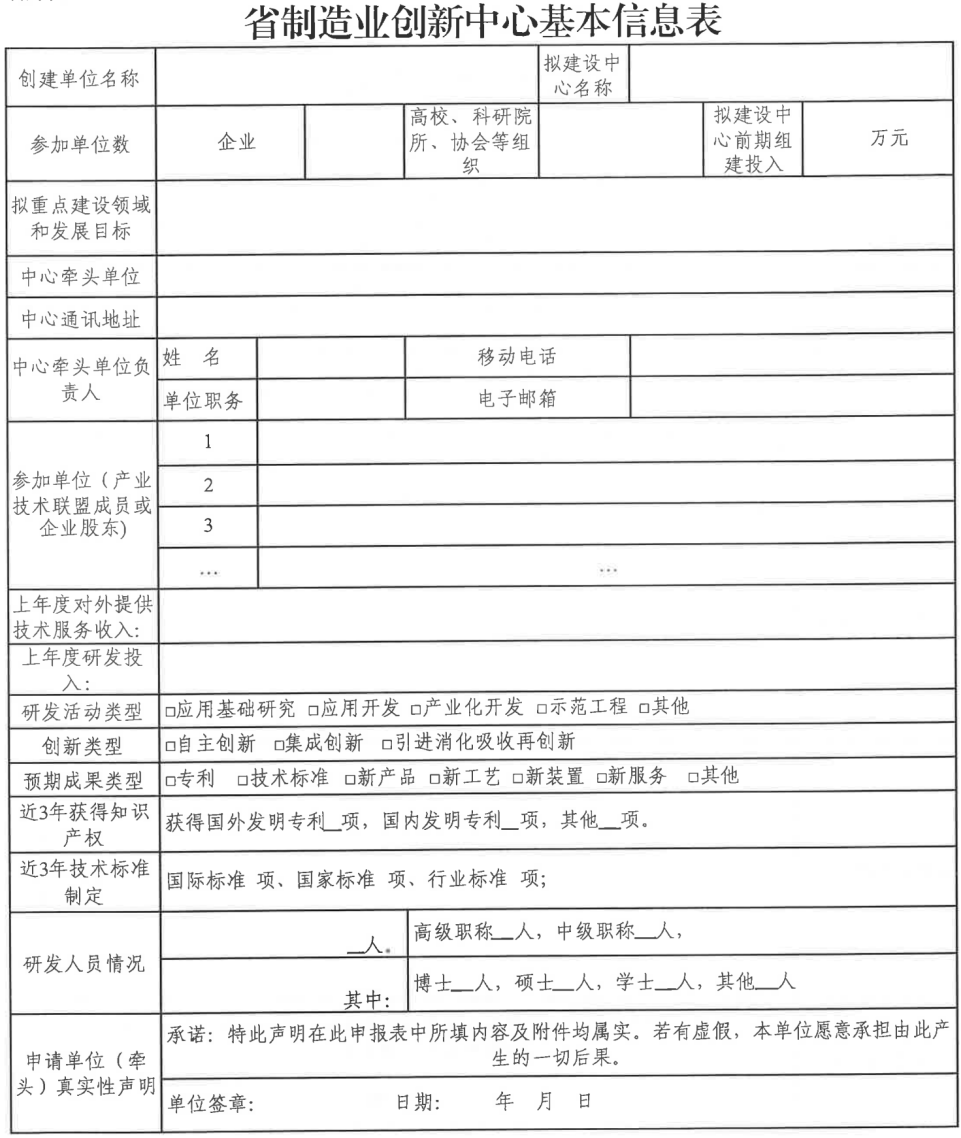 省制造业创新中心基本信息表
创建单位名称
拟建设中
心名称
参加单位数
企业
高校、科研院
所、协会等组
织
拟建设中
心前期组
建投入
万元
拟重点建设领域
和发展目标
中心牵头单位
中心通讯地址
中心牵头单位负
责人
姓 名
移动电话
单位职务
电子邮箱
参加单位（产业
技术联盟成员或
企业股东)
1
2
3
…
…
上年度对外提供
技术服务收入:
上年度研发投
入:
研发活动类型
□应用基础研究 □应用开发 □产业化开发 □示范工程 □其他
创新类型
□自主创新 □集成创新 □引进消化吸收再创新
预期成果类型
□专利 □技术标准 □新产品 □新工艺 □新装置 □新服务 □其他
近3年获得知识
产权
获得国外发明专利__项，国内发明专利__项，其他__项。
近3年技术标准
制定
国际标准 项、国家标准 项、行业标准 项;
研发人员情况
__人。
高级职称__人，中级职称__人，
其中:
博士__人，硕士__人，学士__人，其他__人
申请单位（牵
头）真实性声明
承诺：特此声明在此申报表中所填内容及附件均属实。若有虚假，本单位愿意承担由此产
生的一切后果。
单位签章: 日期: 年 月 日